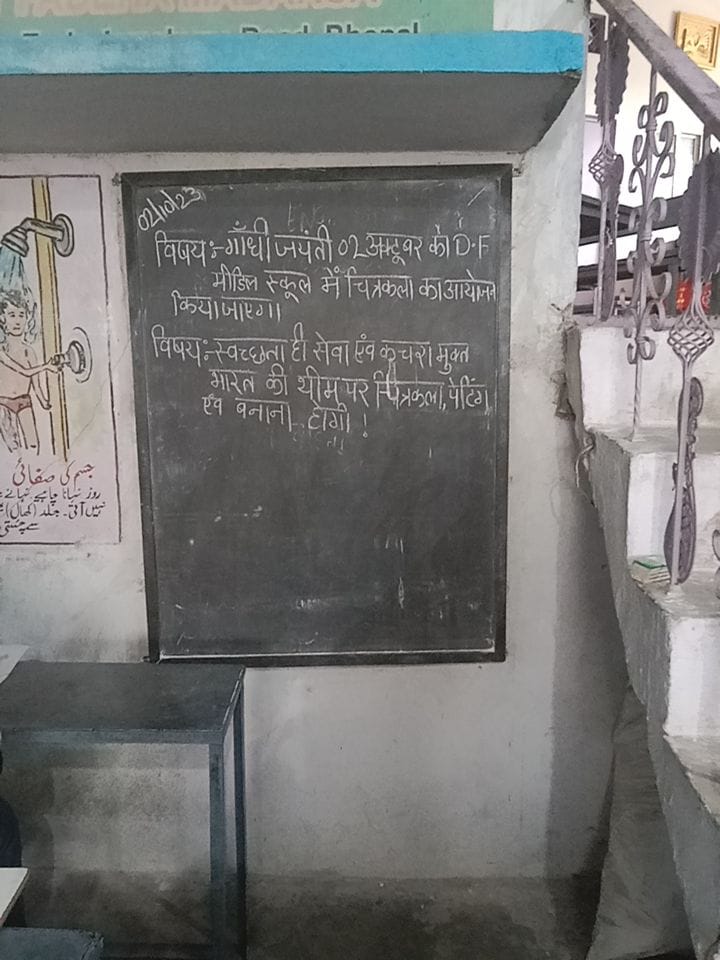 Road, Bhopal
02/10/23
विषय:- गाँधी जयंती 02 अक्टूबर को D.F
मीडिल स्कूल में चित्रकला का आयोजन
किया जाएगा
विषय:- स्वच्छता ही सेवा एंव कचरा मुक्त
भारत की थीम पर चित्रकला, पेटिंग
एंव बनाना होगी !
جسم کی صفائی
روز نہانا چاہیے نہانے
نہیں آتی۔ جلد (کھال)